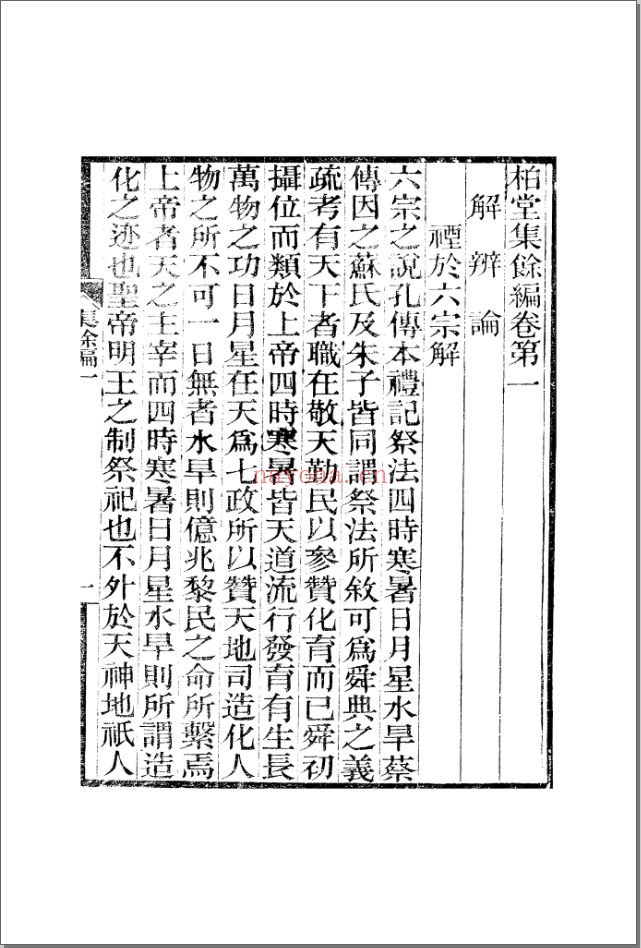 柏堂集餘編卷第一
解辨論
禋於六宗解
六宗之說孔傳本禮記祭法四時寒暑日月星水旱蔡
傳因之蘇氏及朱子皆同謂祭法所敘可爲舜典之義
疏考有天下者職在敬天勤民以參贊化育而已舜初
攝位而類於上帝四時寒暑皆天道流行發育有生長
萬物之功日月星在天爲七政所以贊天地司造化人
物之所不可一日無者水旱則億兆黎民之命所繫焉
上帝者天之主宰而四時寒暑日月星水旱則所謂造
化之迹也聖帝明王之制祭祀也不外於天神地祇人
集餘編一
一
nayona.cn